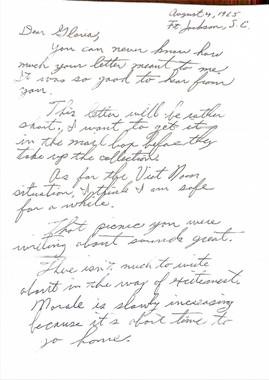 August 4, 1965
Ft Jackson, S.C.
Dear Gloria,
You can never know how
much your letter meant to me.
It was so good to hear from
you.
This letter will be rather
short, I want to get it
in the mail box before they
take up the collection.
As for the Viet Nam
situation, I think I am safe
for a while.
That picnic you were
writing about sounds great.
There isn't much to write
about in the way of excitement.
Morale is slowly increasing
because it's about time to
go home.